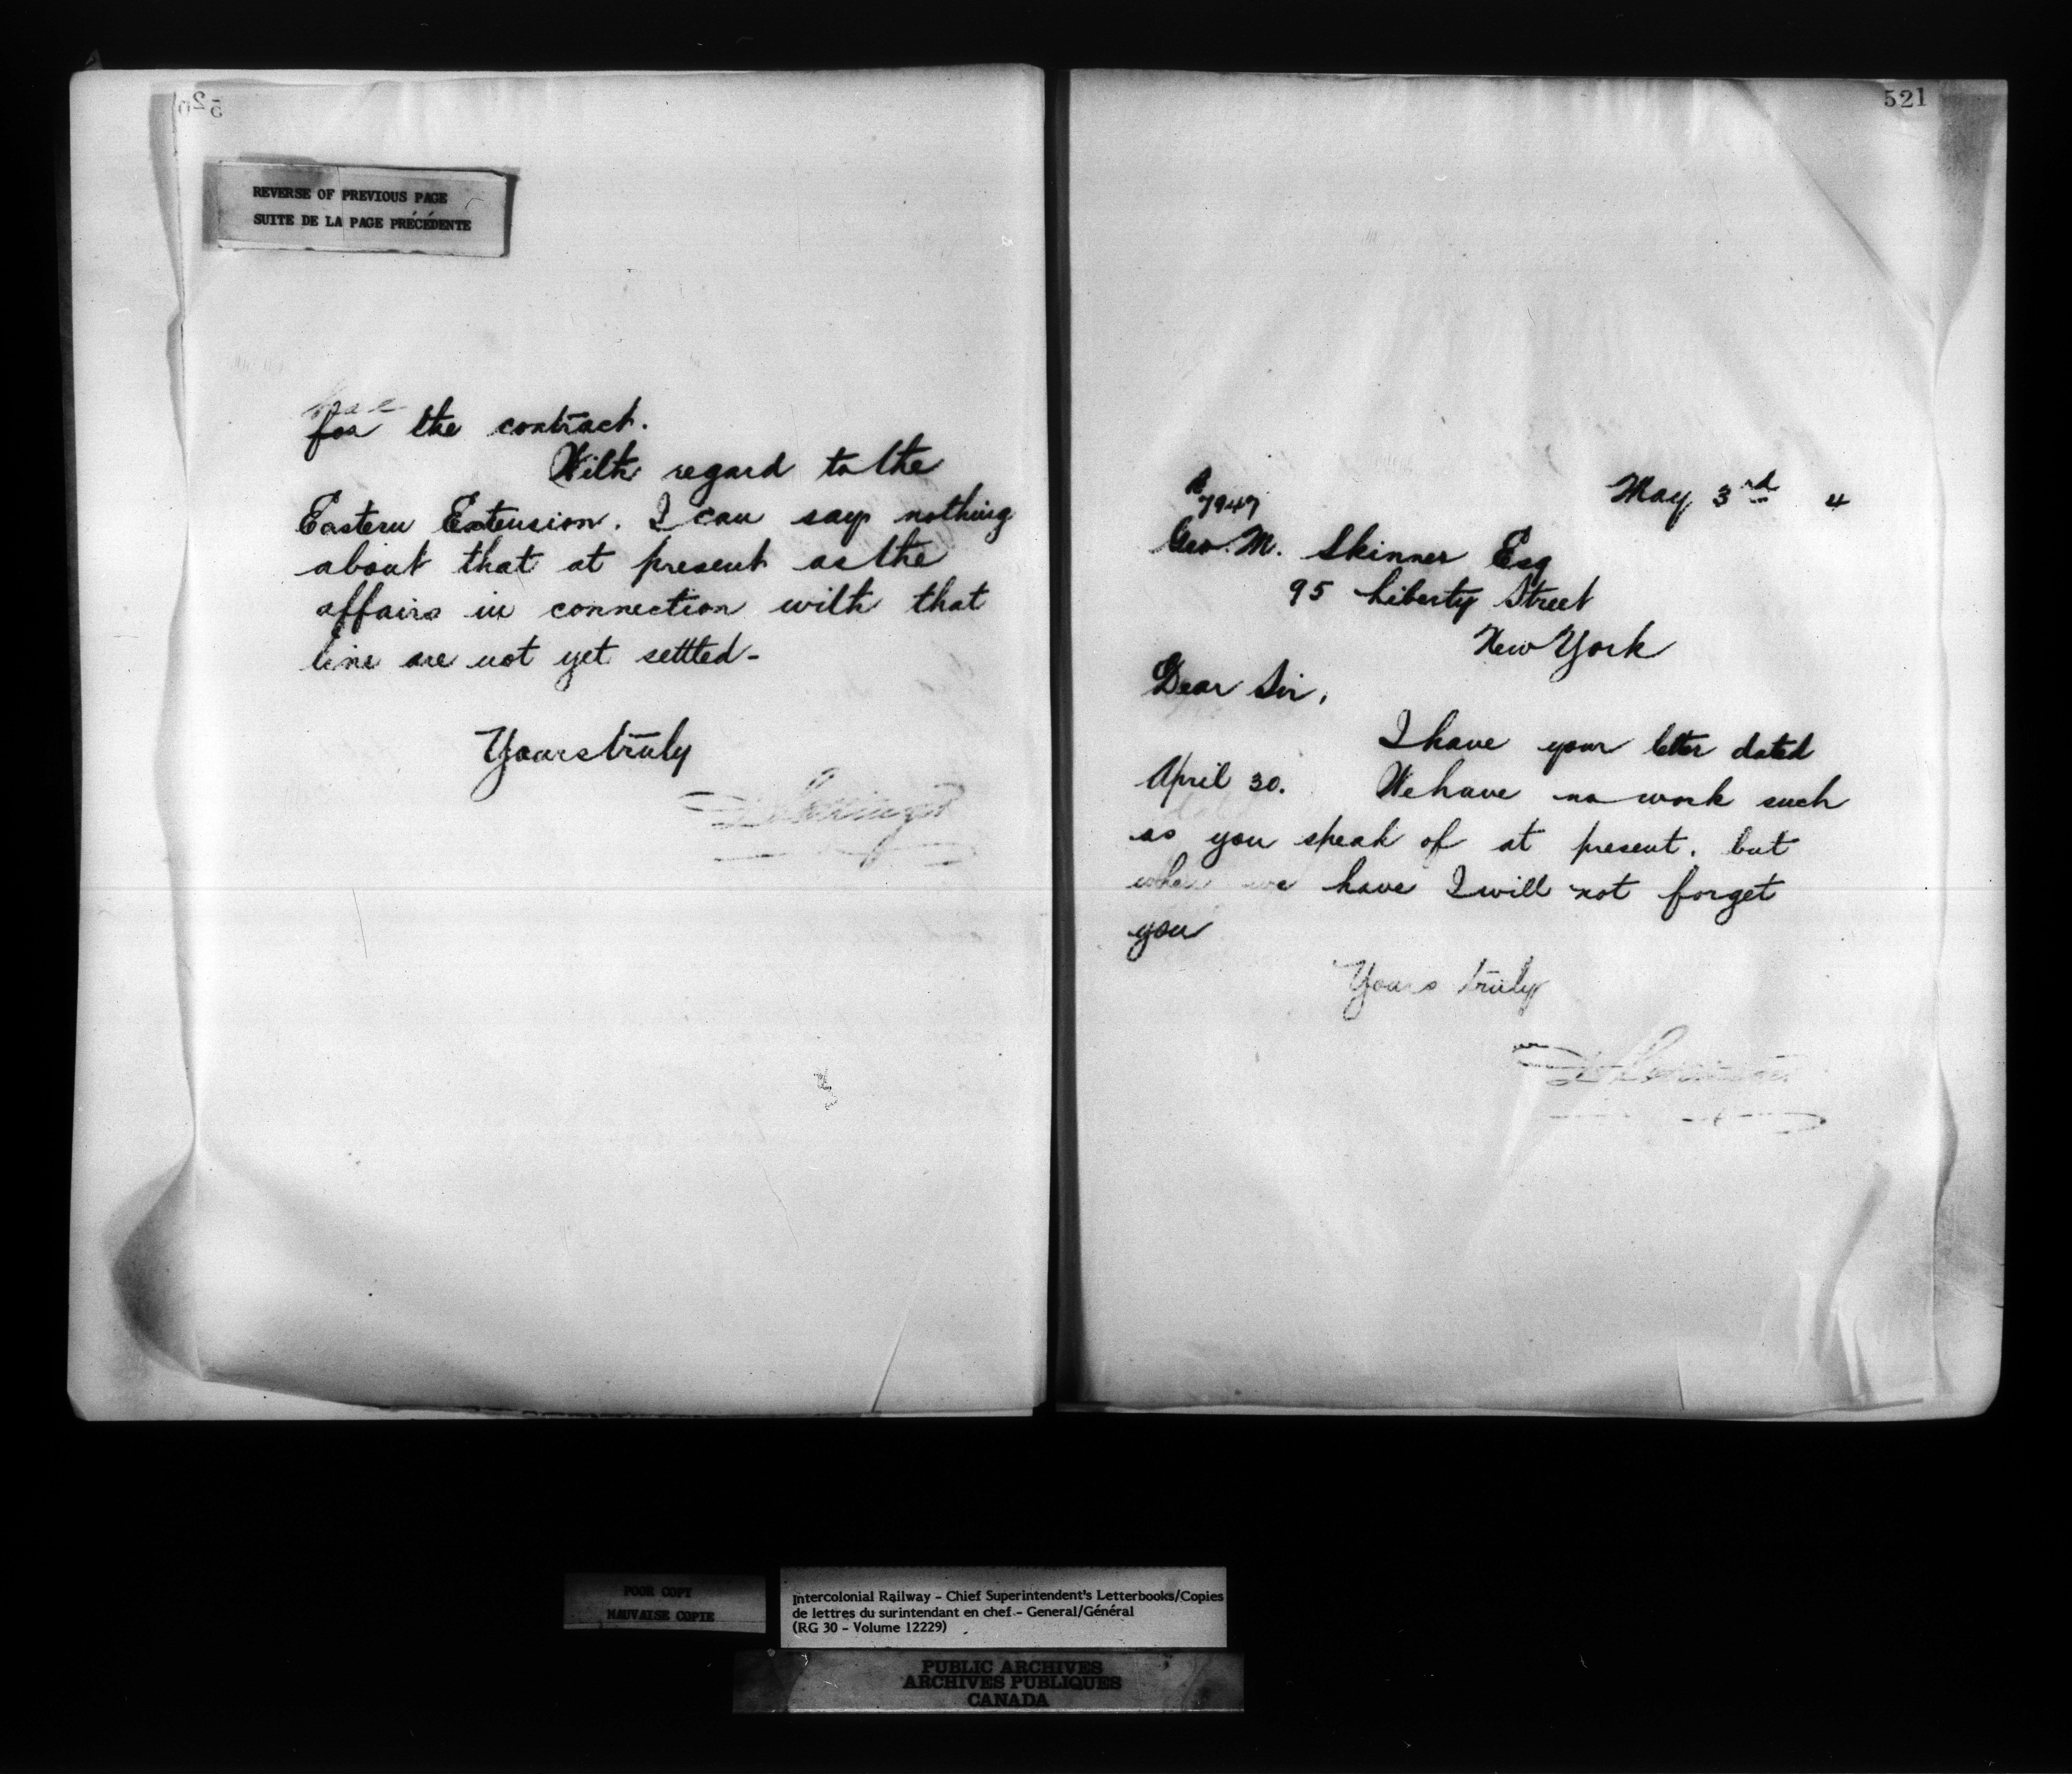 520
REVERSE OF PREVIOUS PAGE
SUITE DE LA PAGE PRÉCÉDENTE
for the contract.
With regard to the
Eastern Extension. I can say nothing
about that at present as the
affairs in connection with that
line are not yet settled-
Yours truly
521
May 3rd 4
7947
Geo. M. Skinner Esq
95 Liberty Street
New York
Dear Sir,
I have your letter dated
April 30. We have no work such
as you speak of at present, but
when we have I will not forget
you
Yours truly
POOR COPY
MAUVAISE COPIE
Intercolonial Railway - Chief Superintendent's Letterbooks/Copies
de lettres du surintendant en chef - General/Général
(RG 30 - Volume 12229)
PUBLIC ARCHIVES
ARCHIVES PUBLIQUES
CANADA